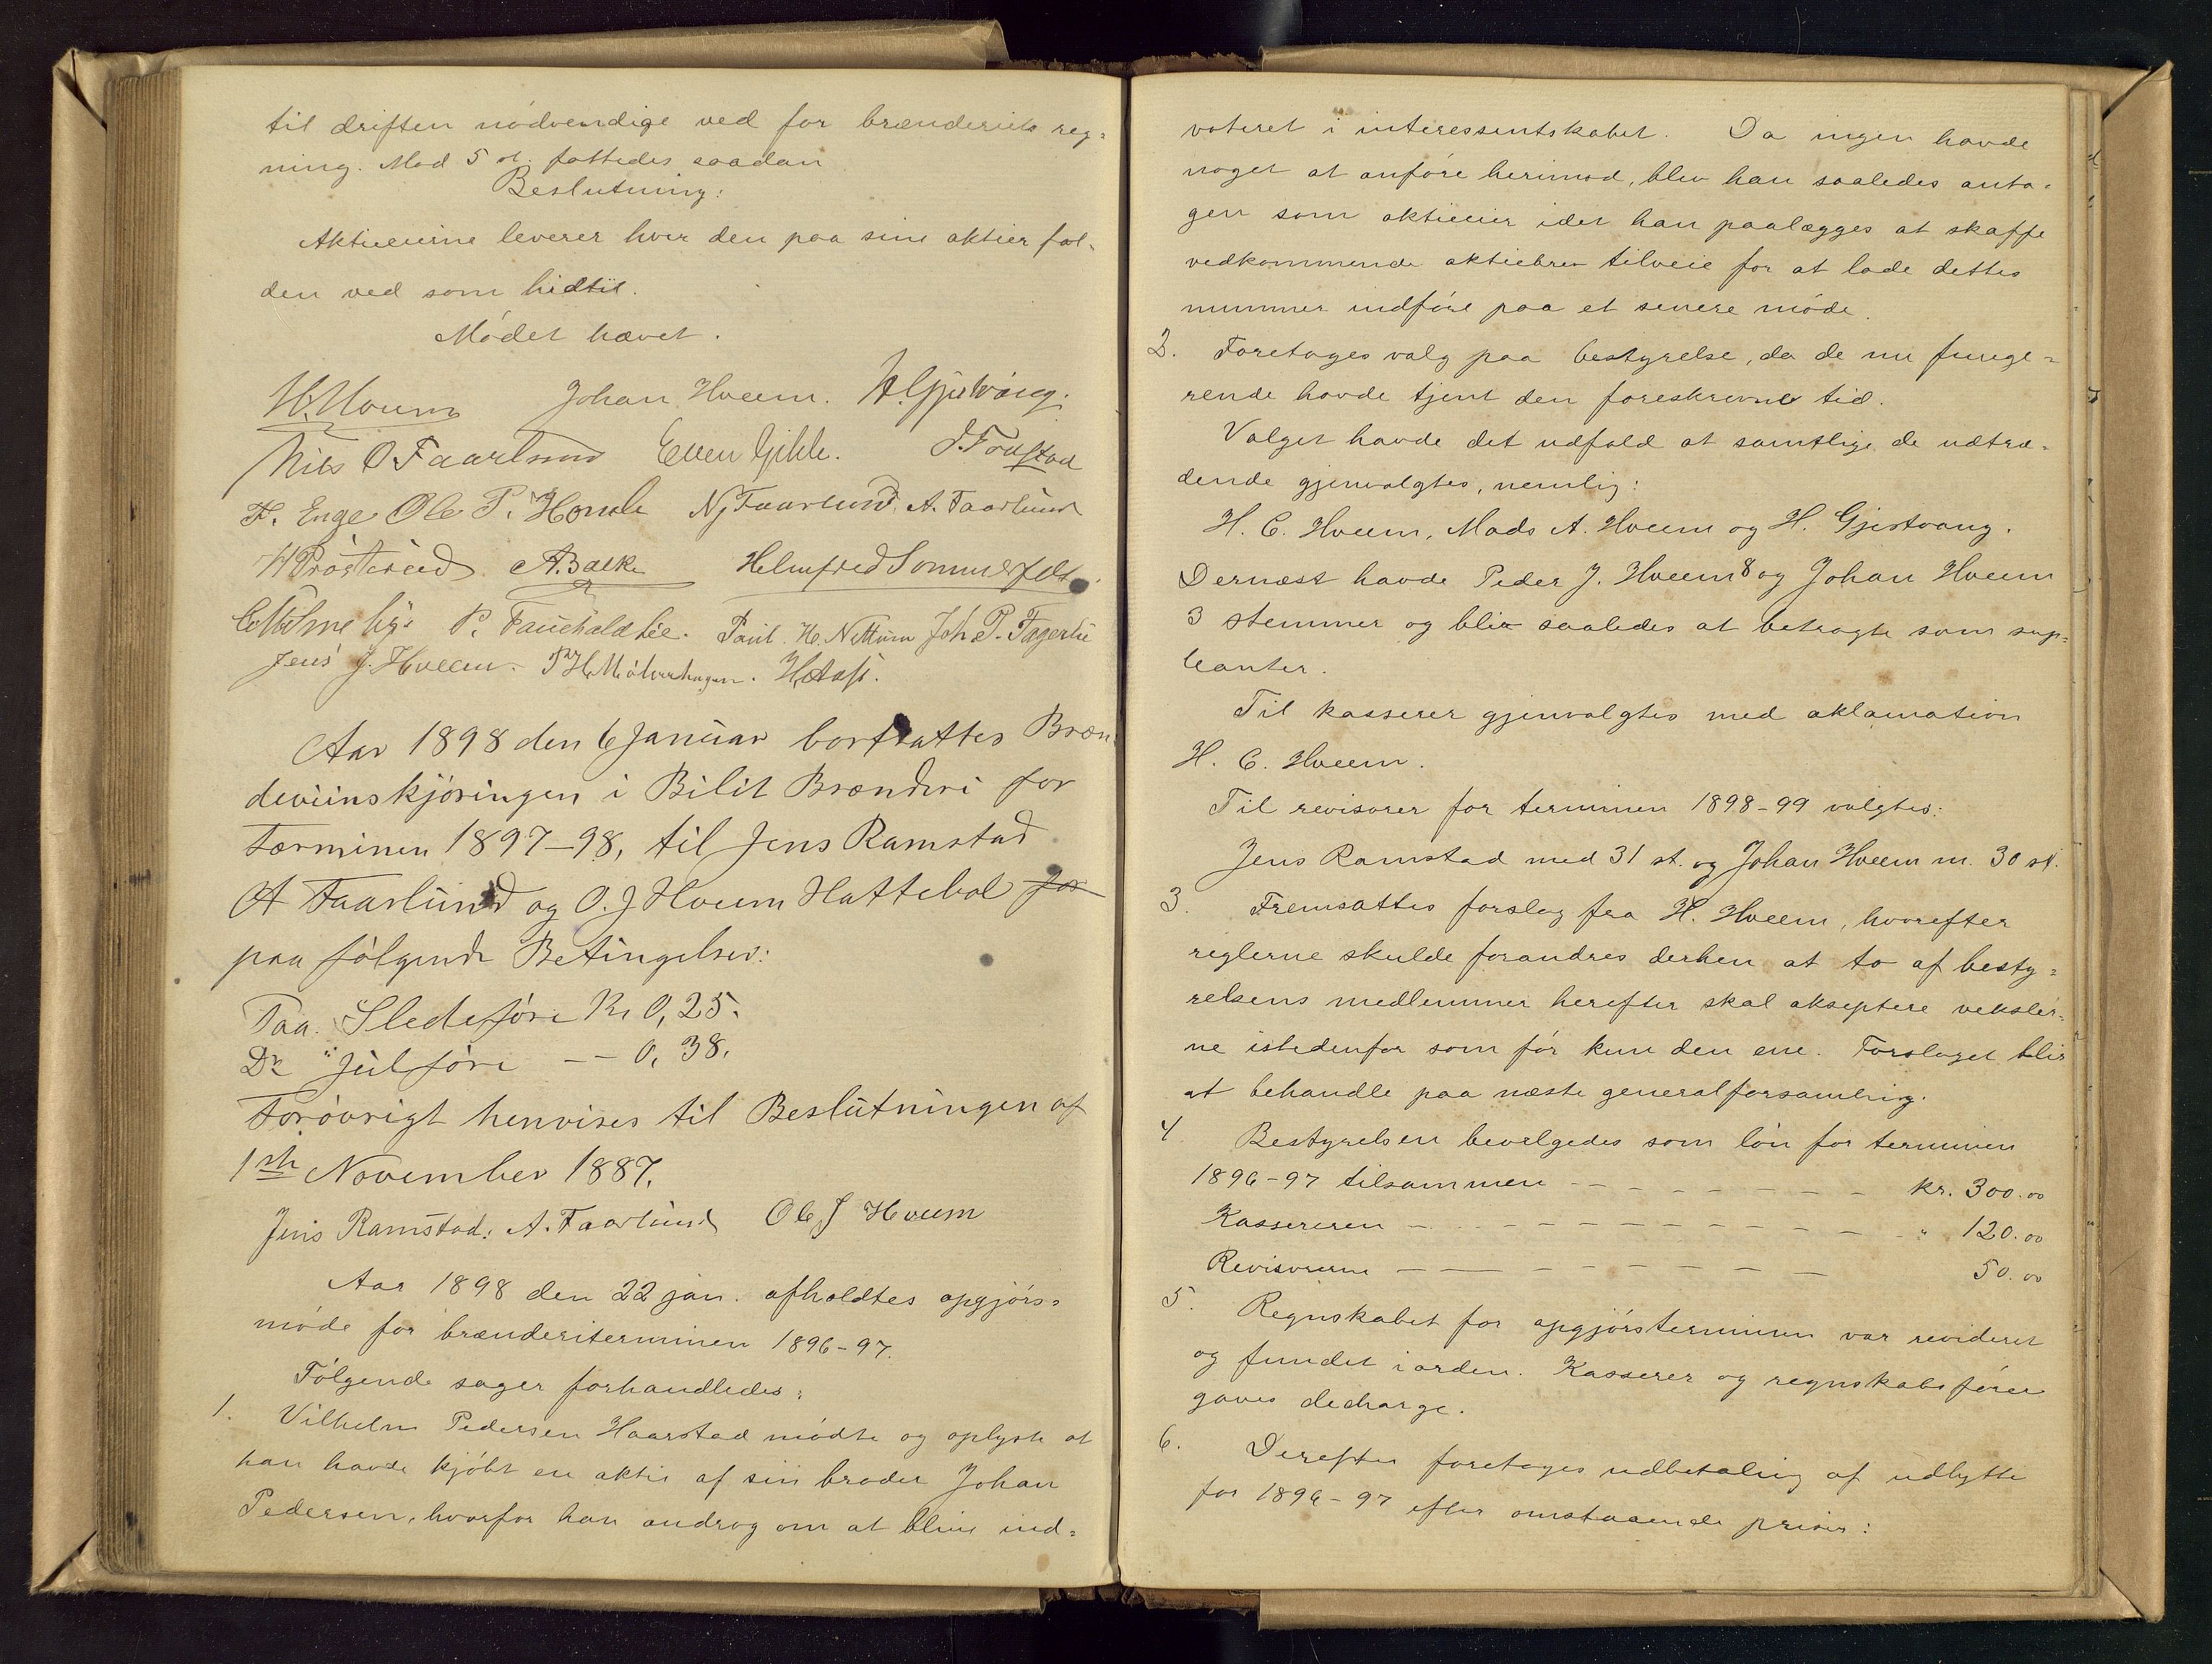 til driften nødvendige ved for brænderiets reg=
ning. Mod 5 st. fattedes saadan
Beslutning:
Aktieeierne leverer hver den paa sine aktier fal-
den ved som hidtil.
Mødet hævet.
H. Hveem Johan Hveem. H. Gjestvang.
Nils O. Faarlund Even Gihle.
H. Enge Ole P. Homle N. Faarlund. A. Faarlund
A. Balke Helmfred Sommerfelt.
P. Fauchald Lie. Paul H. Nettum Joh. P. Fagerlie
Jens J. Hveem.
Aar 1898 den 6 Januar bortsattes Bræn
deviinskjøringen i Bilit Brænderi for
Terminen 1897–98, til Jens Ramstad
A Faarlund og O. J Hveem Hattebol for
paa følgende Betingelser:
Paa Sledeføre Kr 0,25.
Do " Julføre — — 0,38.
Forøvrigt henvises til Beslutningen af
1ste November 1887.
Jens Ramstad. A. Faarlund Ole J Hveem
Aar 1898 den 22 jan. afholdtes opgjørs=
møde for brænderiterminen 1896-97.
Følgende sager forhandledes:
1. Vilhelm Pedersen Haarstad mødte og oplyste at
han havde kjøbt en aktie af sin broder Johan
Pedersen, hvorfor han androg om at blive ind=
voteret i interessentskabet. Da ingen havde
noget at anføre herimod, blev han saaledes anta-
gen som aktieeier idet han paalægges at skaffe
vedkommende aktiebrev tilveie for at lade dettes
nummer indføre paa et senere møde.
2. Foretages valg paa bestyrelse, da de nu funge=
rende havde tjent den foreskrevne tid.
Valget havde det udfald at samtlige de udtræ-
dende gjenvalgtes, nemlig:
H. C. Hveem, Mads A. Hveem og H. Gjestvang.
Dernæst havde Peder J. Hveem 8 og Johan Hveem
3 stemmer og blir saaledes at betragte som sup=
leanter.
Til kasserer gjenvalgtes med aklamation
H. C. Hveem.
Til revisorer for terminen 1898-99 valgtes:
Jens Ramstad med 31 st. og Johan Hveem m. 30 st.
3. Fremsattes forslag fra H. Hveem, hvorefter
reglerne skulde forandres derhen at to af besty=
relsens medlemmer herefter skal akseptere veksler-
ne istedenfor som før kun den ene. Forslaget blir
at behandle paa næste generalforsamling.
4 Bestyrelsen bevilgedes som løn for terminen
1896-97 tilsammen - - - - - - - - kr. 300.00
Kassereren - - - - - - - - - - " 120.00
Revisorerne - - - - - - - - - 50.00
5. Regnskabet for opgjørsterminen var revideret
og fundet iorden. Kasserer og regnskabsfører
gaves decharge.
6. Derefter foretages udbetaling af udbytte
for 1896-97 efter omstaaende priser: